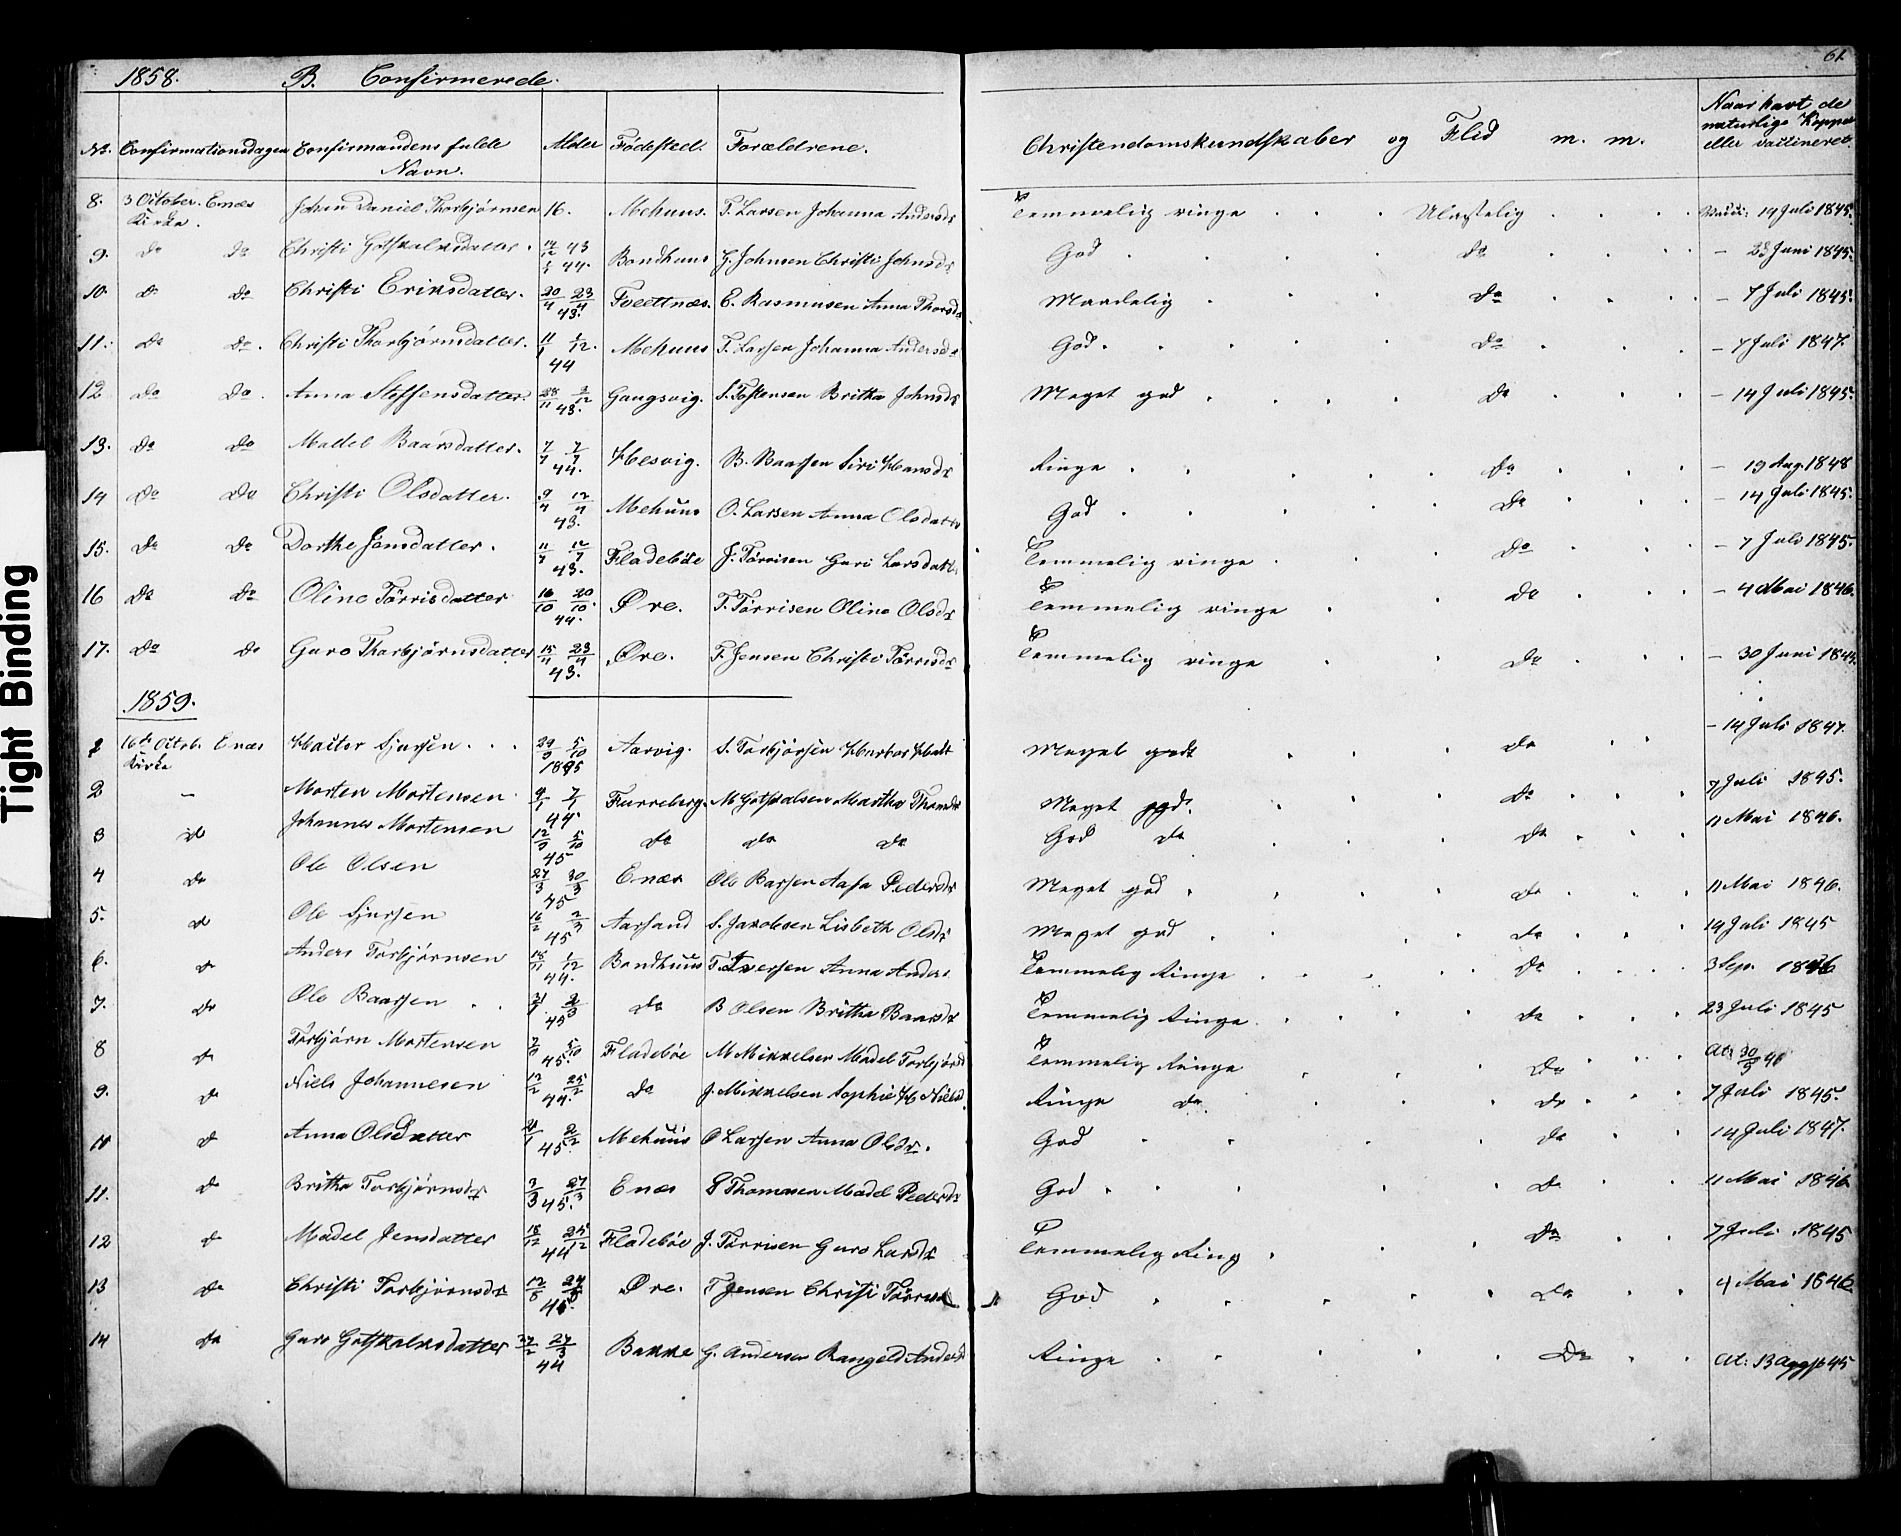 Tight Binding
1858. B. Confirmerede. 61
No. Confirmationsdagen Confirmandens fulde Navn. Alder Fødested. Forældrene. Christendomskundskaber og Flid m. m. Naar havt de naturlige Kopper eller vaccineret.
8. 3 October. Enæs Kirke. Johan Daniel Thorbjørnsen 16. Mehuus. T. Larsen Johanna Andersdr Temmelig ringe Ulastelig 14 Juli 1845.
9. do do Christi Gotskalksdatter. 43 44. Bondhuus G. Johnsen Christi Johnsdr God do - 28 Juni 1845.
10. do do Christi Eriksdatter. 20/4 23/4 43. Tveittnæs. E. Rasmusen Anna Thorsdr Maadelig do - 7 Juli 1845.
11. do do. Christi Thorbjørnsdatter. 11/1 1/12. 44 Mehuus T. Larsen Johanna Andersdr God. do - 7 Juli 1847.
12 do do. Anna Steffensdatter. 28/11 3/12 43. Gangsvig. S. Tostensen Britha Johnsdr Meget god do - 14 Juli 1845.
13. do do Madel Baarsdatter. 7/7 7/7 44. Hesvig. B. Baarsen Siri Hansdr Ringe do - 19 Aug. 1848
14 do do Christi Olsdatter. 9/4 12/4 43. Mehuus O. Larsen Anna Olsdatter God do - 14 Juli 1845.
15. do do Dorthe Jensdatter. 11/7 12/7 43. Fladebøe J. Tørrisen Guri Larsdatt. Temmelig ringe do - 7 Juli 1845.
16 do do Oline Tørrisdatter 16/10 20/10. 44. Øre. T. Tørrisen Oline Olsdr Temmelig ringe do - 4 Mai 1846.
17. do do Guro Thorbjørnsdatter 15/4 23/4 43. Øre. T. Jensen Christi Tørrisdr Temmelig ringe do - 30 Juni 1845.
1859.
1 16de Octob. Enæs Kirke Sjursen 29/9 5/10 1845 Aarvig. S. Torbjørsen Meget godt do - 14 Juli 1847.
2 - Morten Mortensen 4/1 7/1 44. Furreberg. M Gotskalsen Martha Thomdr Meget god. do 7 Juli 1845.
3 do Johannes Mortensen 12/9 5/10 45 do do do God do do 11 Mai 1846.
4 do Ole Olsen 27/3 30/3 45 Enæs Ole Barsen Aasa Pedersdr Meget god do 11 Mai 1846.
5. do Ole Sjursen 16/2 2/3 45 Aarsand S. Jacobsen Lisbeth Olsdr Meget god do 14 Juli 1845
6. do Anders Torbjørnsen 18/11 1/12 44. Bondhuus T. Iversen Anna Anders. Temmelig Ringe do 3 Sep. 1846
7. do Ole Baarsen 2/3 45 do B Olsen Britha Baarsdr Temmelig Ringe do 23 Juli 1845
8 do Torbjørn Mortensen 5/10 45. Fladebøe M Mikkelsen Madel Torbjørnsd Temmelig Ringe do At: 30/9 46
9. do Niels Johannesen 12/2 25/2 44. do J. Mikkelsen Sophie H. Nielsd. Ringe do do 7 Juli 1845.
10 do Anna Olsdatter 2/2 45. Mehuus O Larsen Anna Olsdr. God do 14 Juli 1847.
11. do Britha Torbjørnsdr 3/3 27/3 45. Enæs T Thomasen Madel Pedersdr God do 11 Mai 1846
12 do Madel Jensdatter 18/12 25/12 44 Fladebøe J. Tørrisen Guro Larsdr Temmelig Ring do 7 Juli 1845
13 do Christi Torbjørnsdr 12/8 24/8 45. Øre. T Jensen Christi Tørrisd God do 4 Mai 1846
14 do Guro Gotskalksdatter 27/2 27/3 44 Bakke G. Andersen Rangeld Andersd Ringe do At: 13 Augst 45